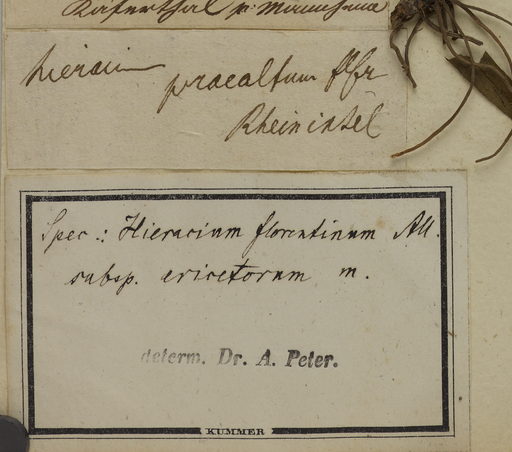 Käferthal b. Mannheim
hieracium praealtum
Rheininsel
Spec.: Hieracium florentinum All.
subsp. ericetorum m.
determ. Dr. A. Peter.
KUMMER